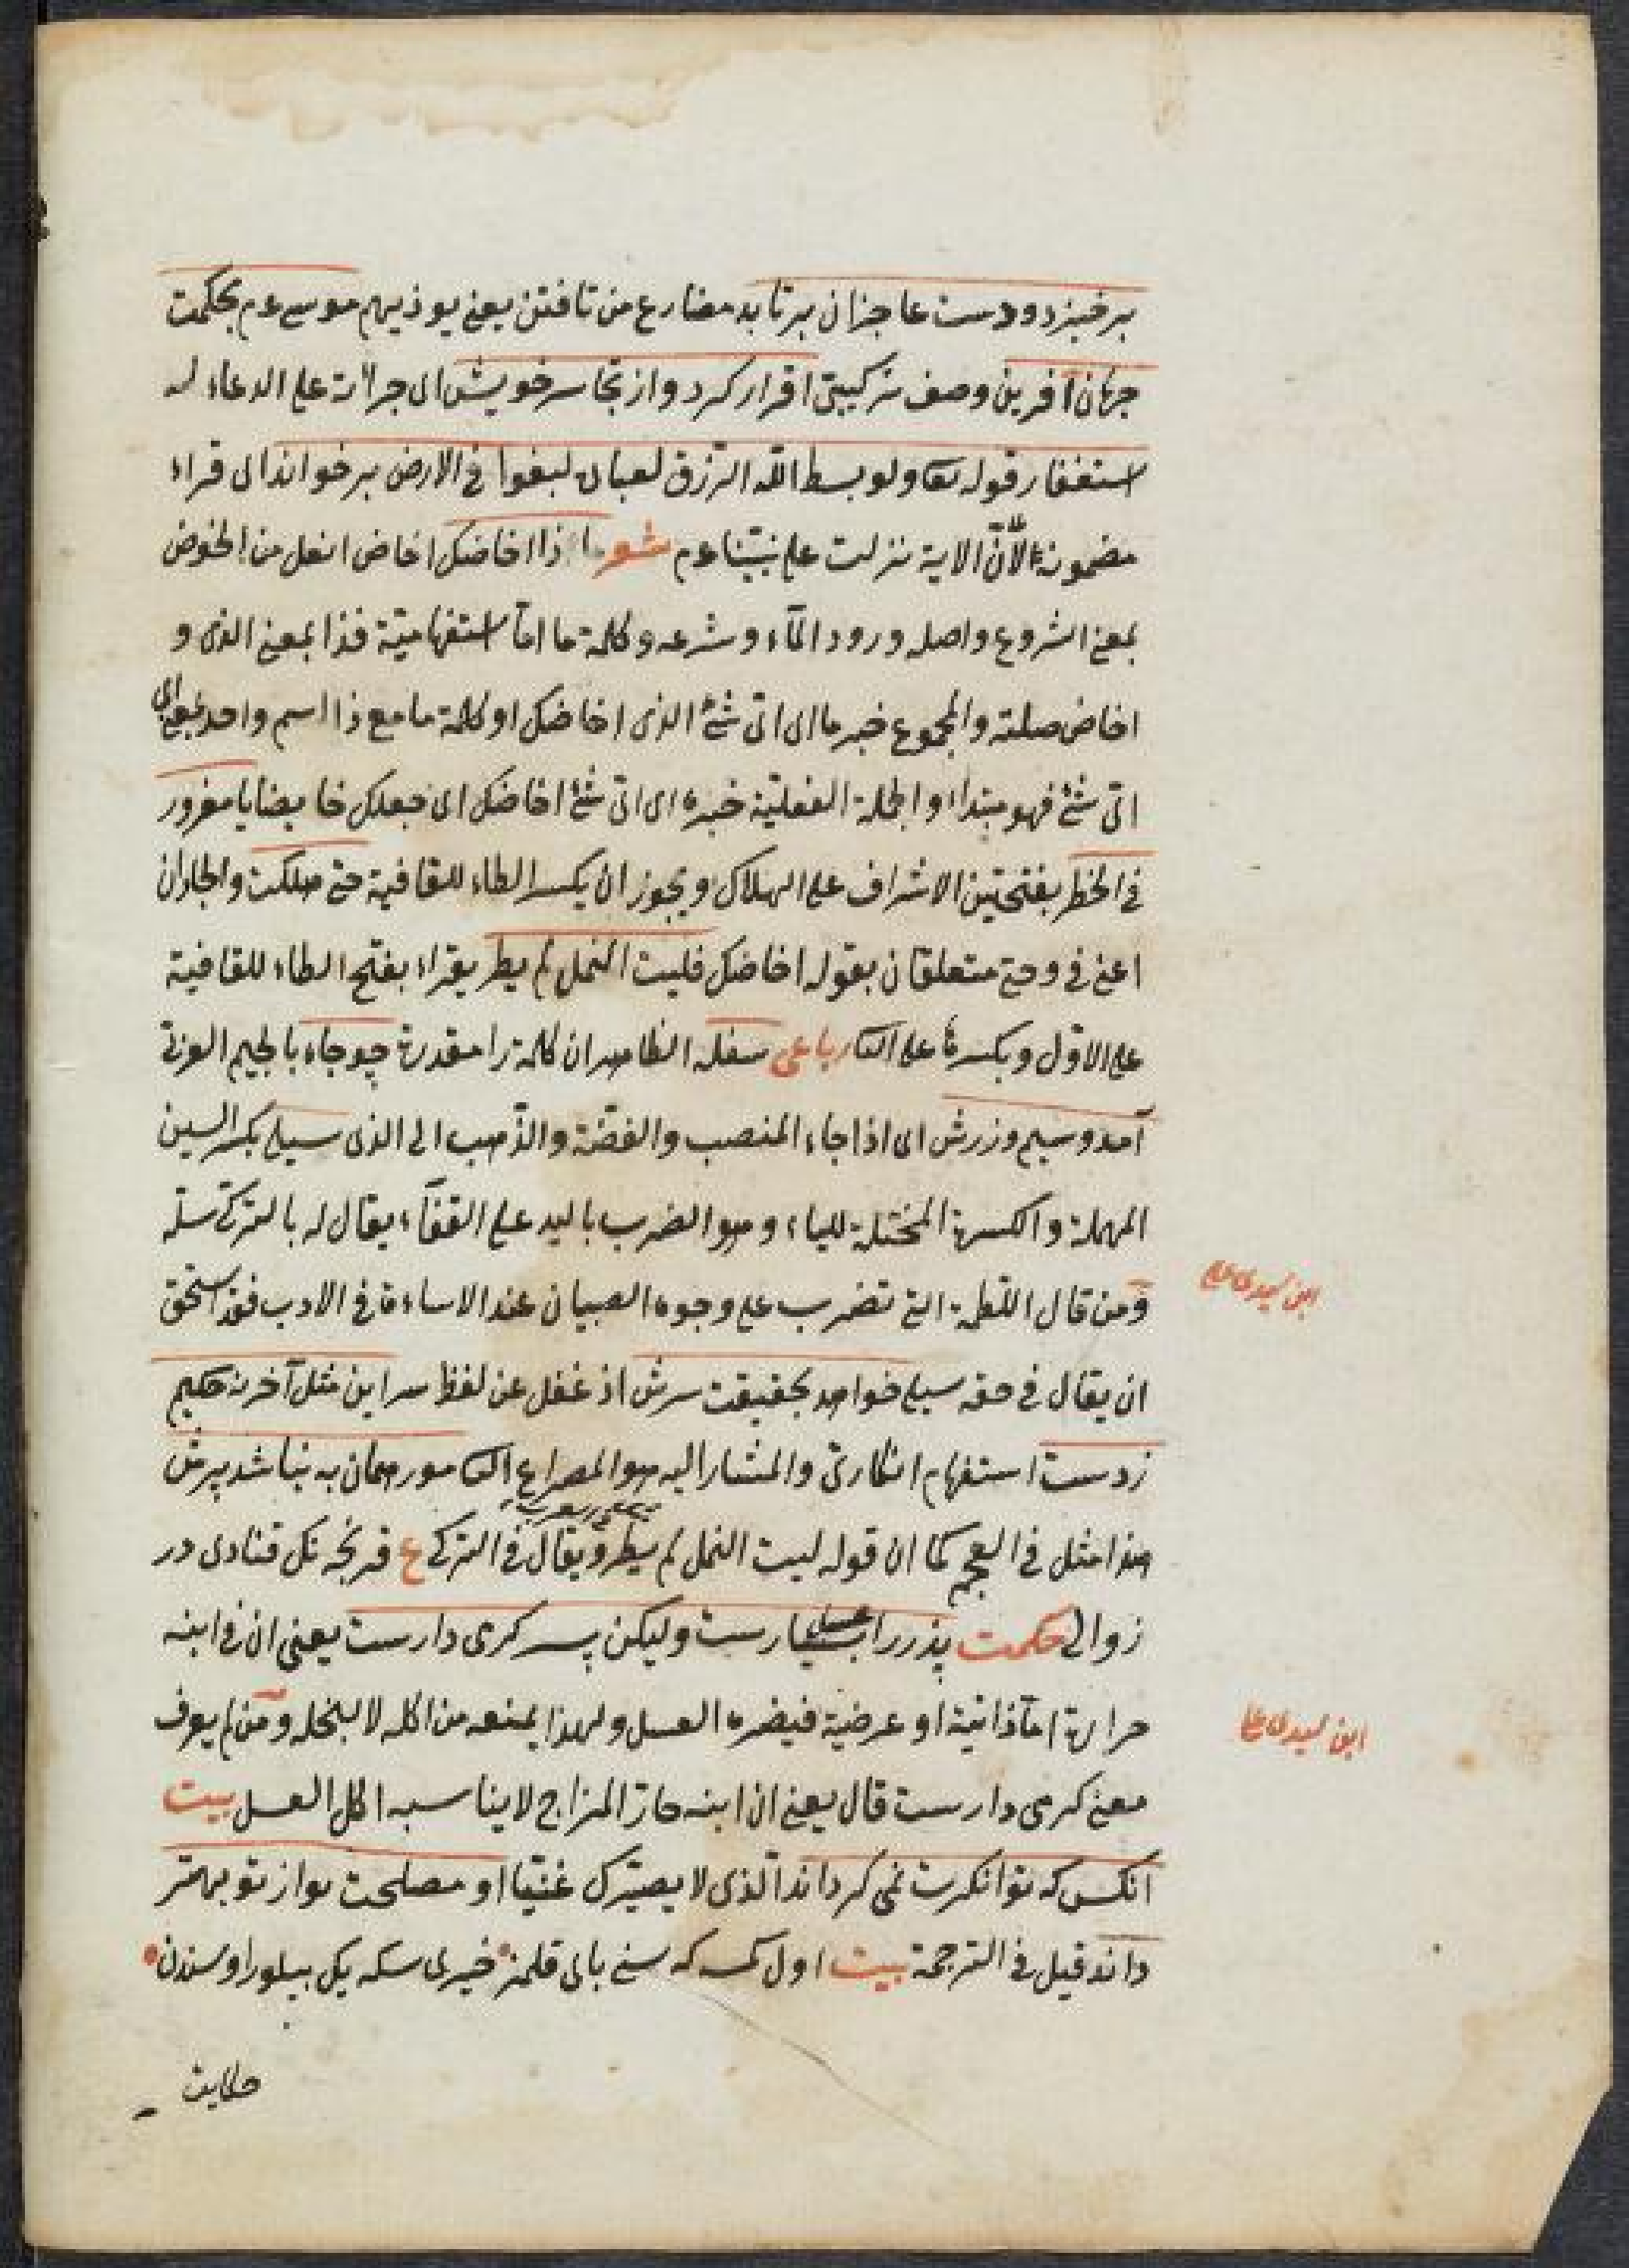 برخیزد و دست عاجزان برتابد مضارع من تافتن یعنی یوذیهم موسی عم بحکمت
جهان آفرین وصف ترکیبی اقرار کرد و از تجاسر خویش ای جرائة علی الدعاء له
استغفار قوله تعا ولو بسط الله الرزق لعباده لبغوا فی الارض برخواند ای قراء
مضمونه لانّ الایة نزلت علی نبیّنا عم شعر ما ذا اخاضک اخاض افعل من الخوض
بمعنی الشروع واصله ورود المآء وشرعه وکلمة ما امّا استفهامیّة فذا بمعنی الذی و
اخاض صلته والمجموع خبر ما ای ایّ شئ الذی اخاضک او کلمة ما مع ذا اسم واحد بمعنی ای
ایّ شئ فهو مبتداء والجملة الفعلیّة خبره ای ایّ شئ اخاضک ای جعلک خایضا یا مغرور
فی الخطر بفتحتین الاشراف علی الهلاک ویجوز ان یکسر الطاء للقافیة حتی هلکت والجاران
اعنی فی وحتی متعلقان بقوله اخاضک فلیت النمل لم یطر یقراء بفتح الطاء للقافیة
علی الاوّل وبکسرها علی الثا رباعی سفله الظاهر ان کلمة را مقدرة چو جاه بالجیم العربی
آمد و سیم و زرش ای اذا جاء المنصب والفضّة والذّهب الی الذی سیلی بکسر السین
المهملة والکسرة المختلة للیاء وهو الضرب بالید علی القفآء یقال له بالترکی سلّه
ومن قال اللّطمة التی تضرب علی وجوه الصبیان عند الاساءة فی الادب فقد استحق
ابن سیدی علی
ان یقال فی حقه سیلی خواهد بحقیقت سرش اذ غفل عن لفظ سر این مثل آخر نه حکیم
زدست استفهام انکاری والمشار الیه هو المصراع الثا مور همان به نباشد پرش
هذا مثل فی العجم کما ان قوله لیت النمل لم یطر ویقال فی الترکی ع قرنجه نک قنادی در
زوالی حکمت پدر را عسل بسیارست ولیکن پسر کرمی دارست یعنی ان فی ابنه
حرارة امّا ذاتیة او عرضیة فیضره العسل ولهذا یمنعه من اکله لا لبخله ومن لم یعرف
ابن سیدی علی
معنی کرمی دارست قال یعنی ان ابنه حارّ المزاج لا یناسبه اکل العسل بیت
انکس که توانکرت نمی کرداند الّذی لا یصیّرک غنیّا او مصلحت تو از تو بهتر
داند قیل فی الترجمة بیت اول کسه که سنی بای قلمز خیرلی سکه یک بیلور او سندن
حکایت